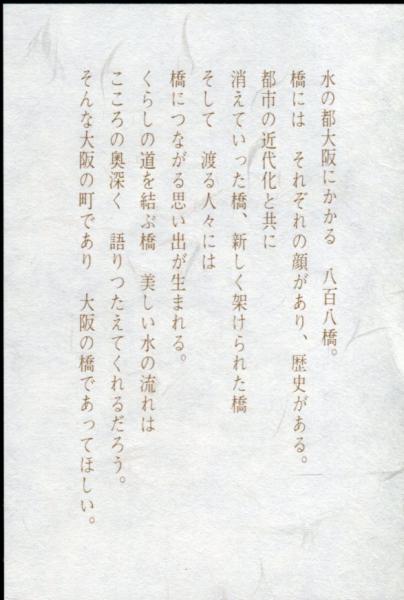 水の都大阪にかかる　八百八橋。
橋には　それぞれの顔があり、歴史がある。
都市の近代化と共に
消えていった橋、新しく架けられた橋
そして　渡る人々には
橋につながる思い出が生まれる。
くらしの道を結ぶ橋　美しい水の流れは
こころの奥深く　語りつたえてくれるだろう。
そんな大阪の町であり　大阪の橋であってほしい。